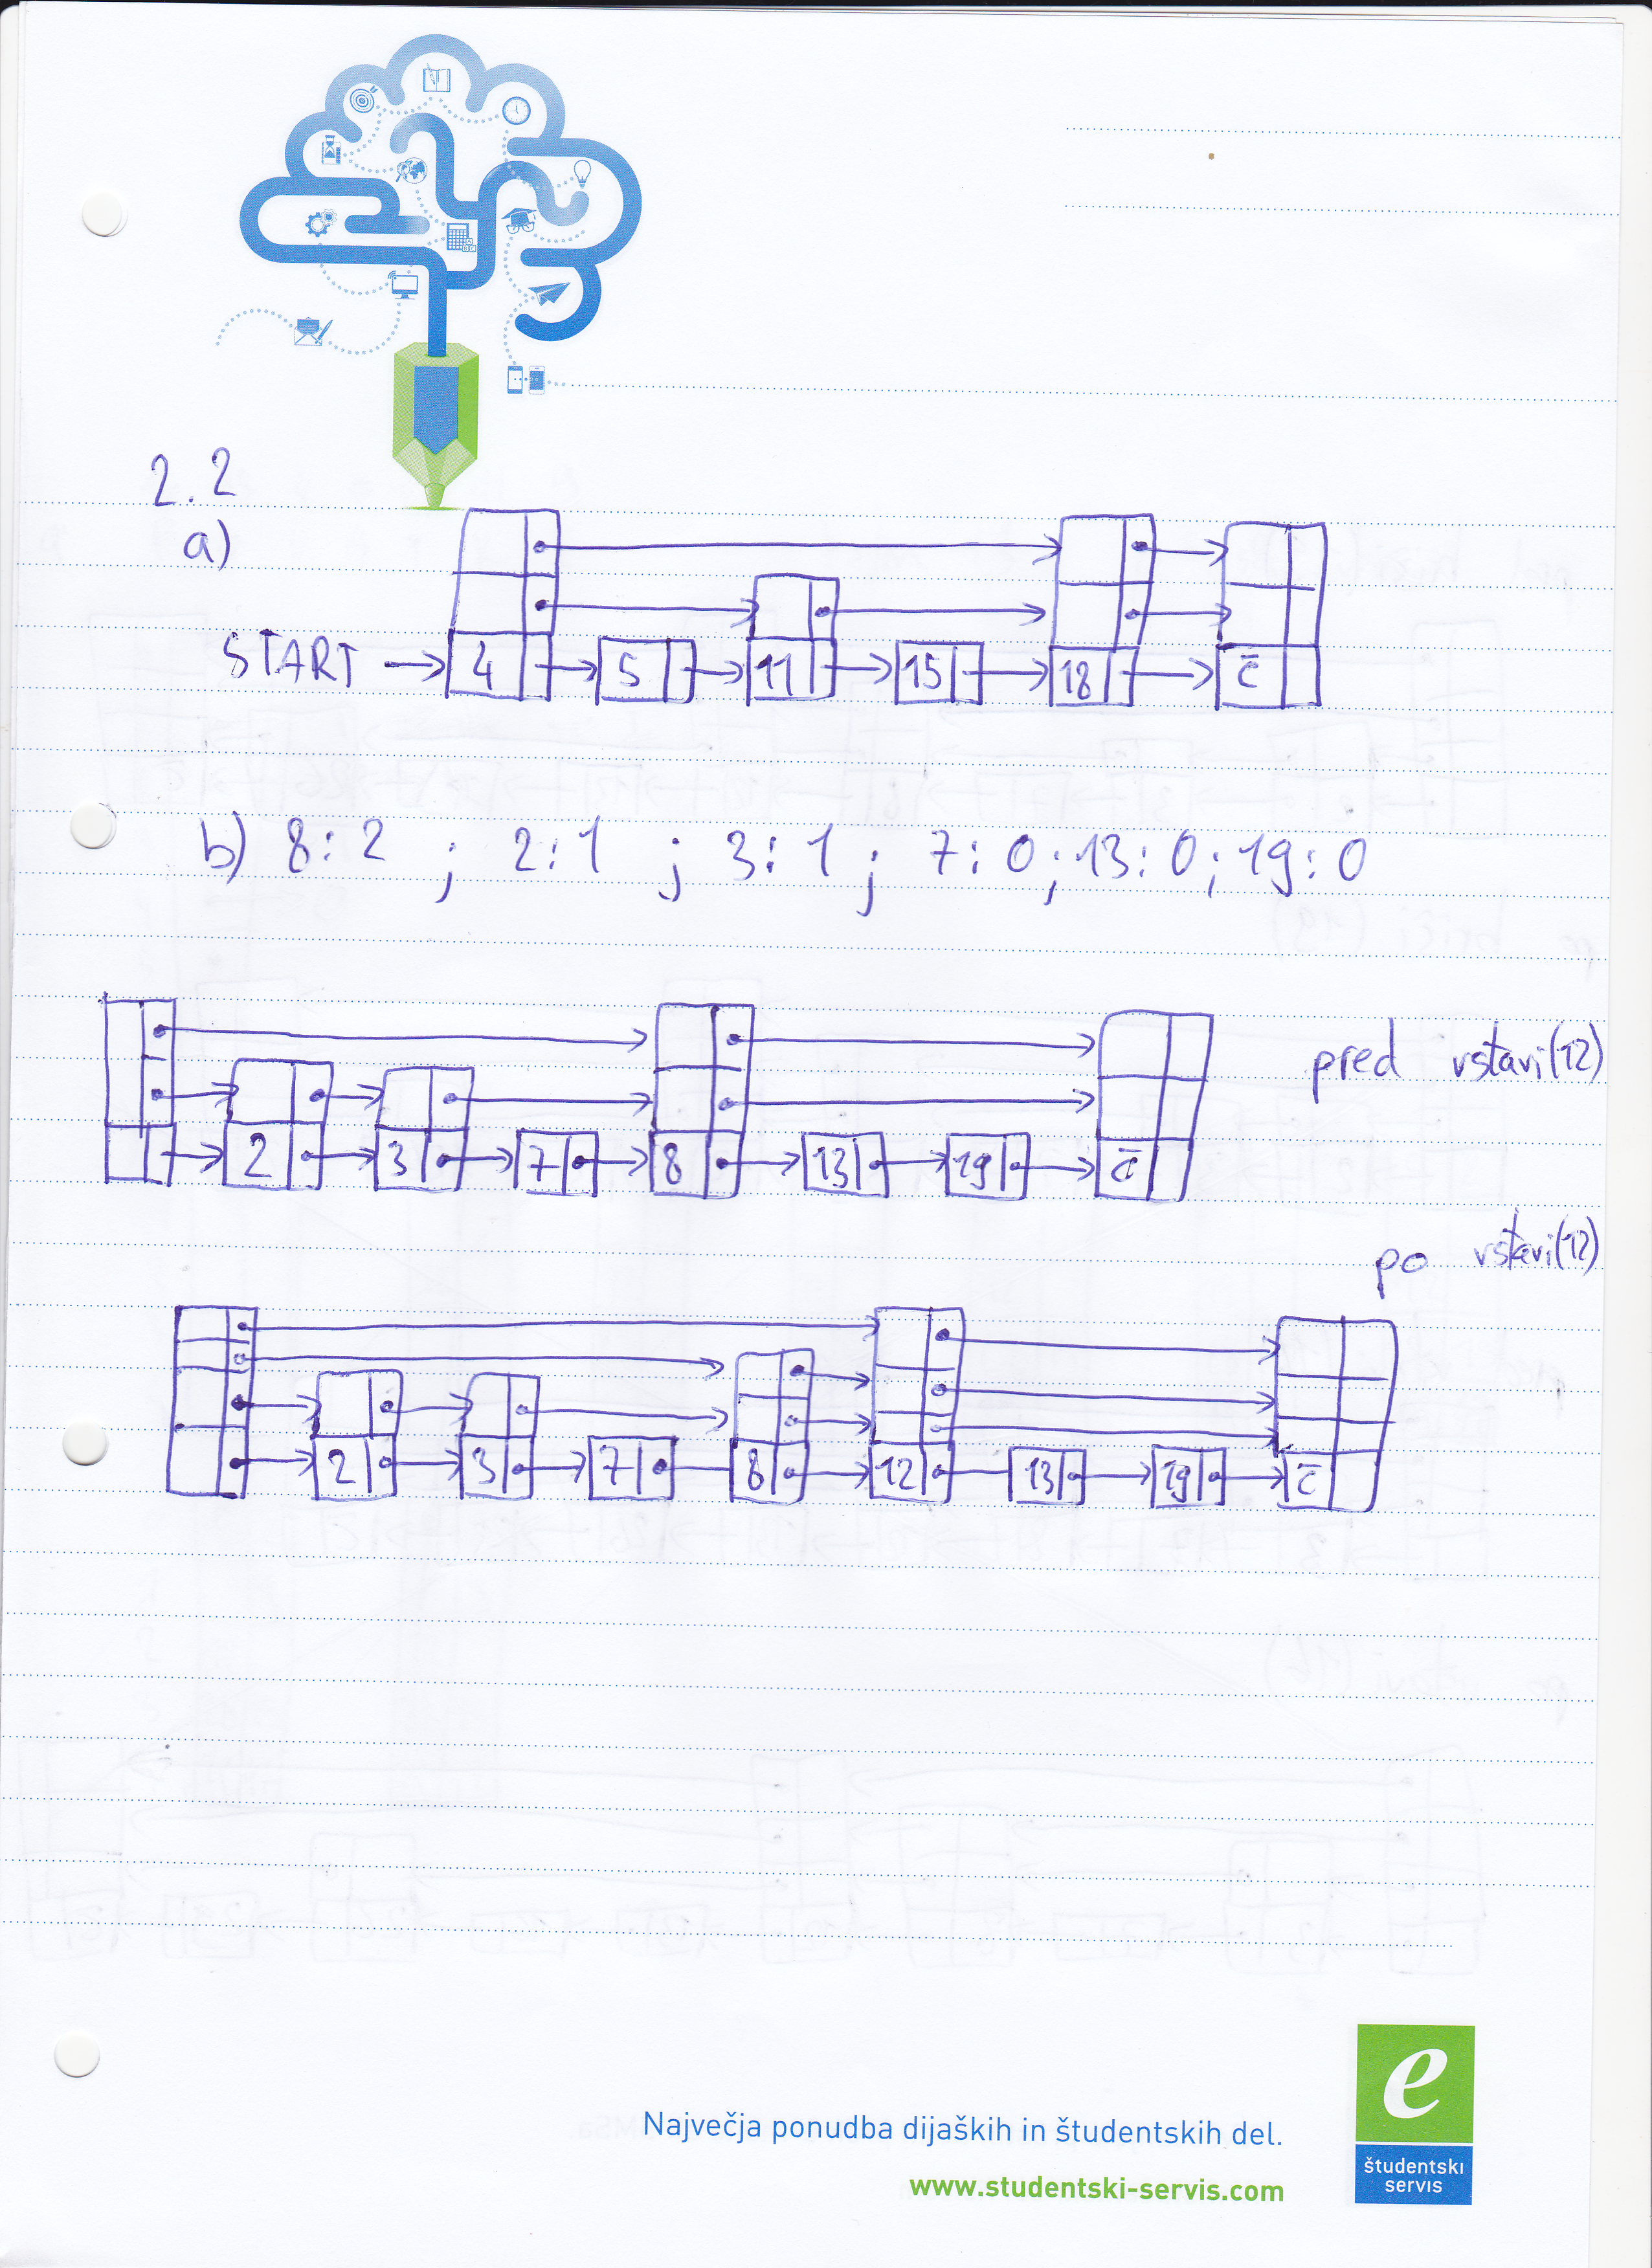 2.2
a)
START → 4 5 11 15 18 c̄
b) 8:2 ; 2:1 ; 3:1 ; 7:0 ; 13:0 ; 19:0
pred vstavi(12)
2 3 7 8 13 19 c̄
po vstavi(12)
2 3 7 8 12 13 19 c̄
Največja ponudba dijaških in študentskih del.
www.studentski-servis.com
e
študentski
servis